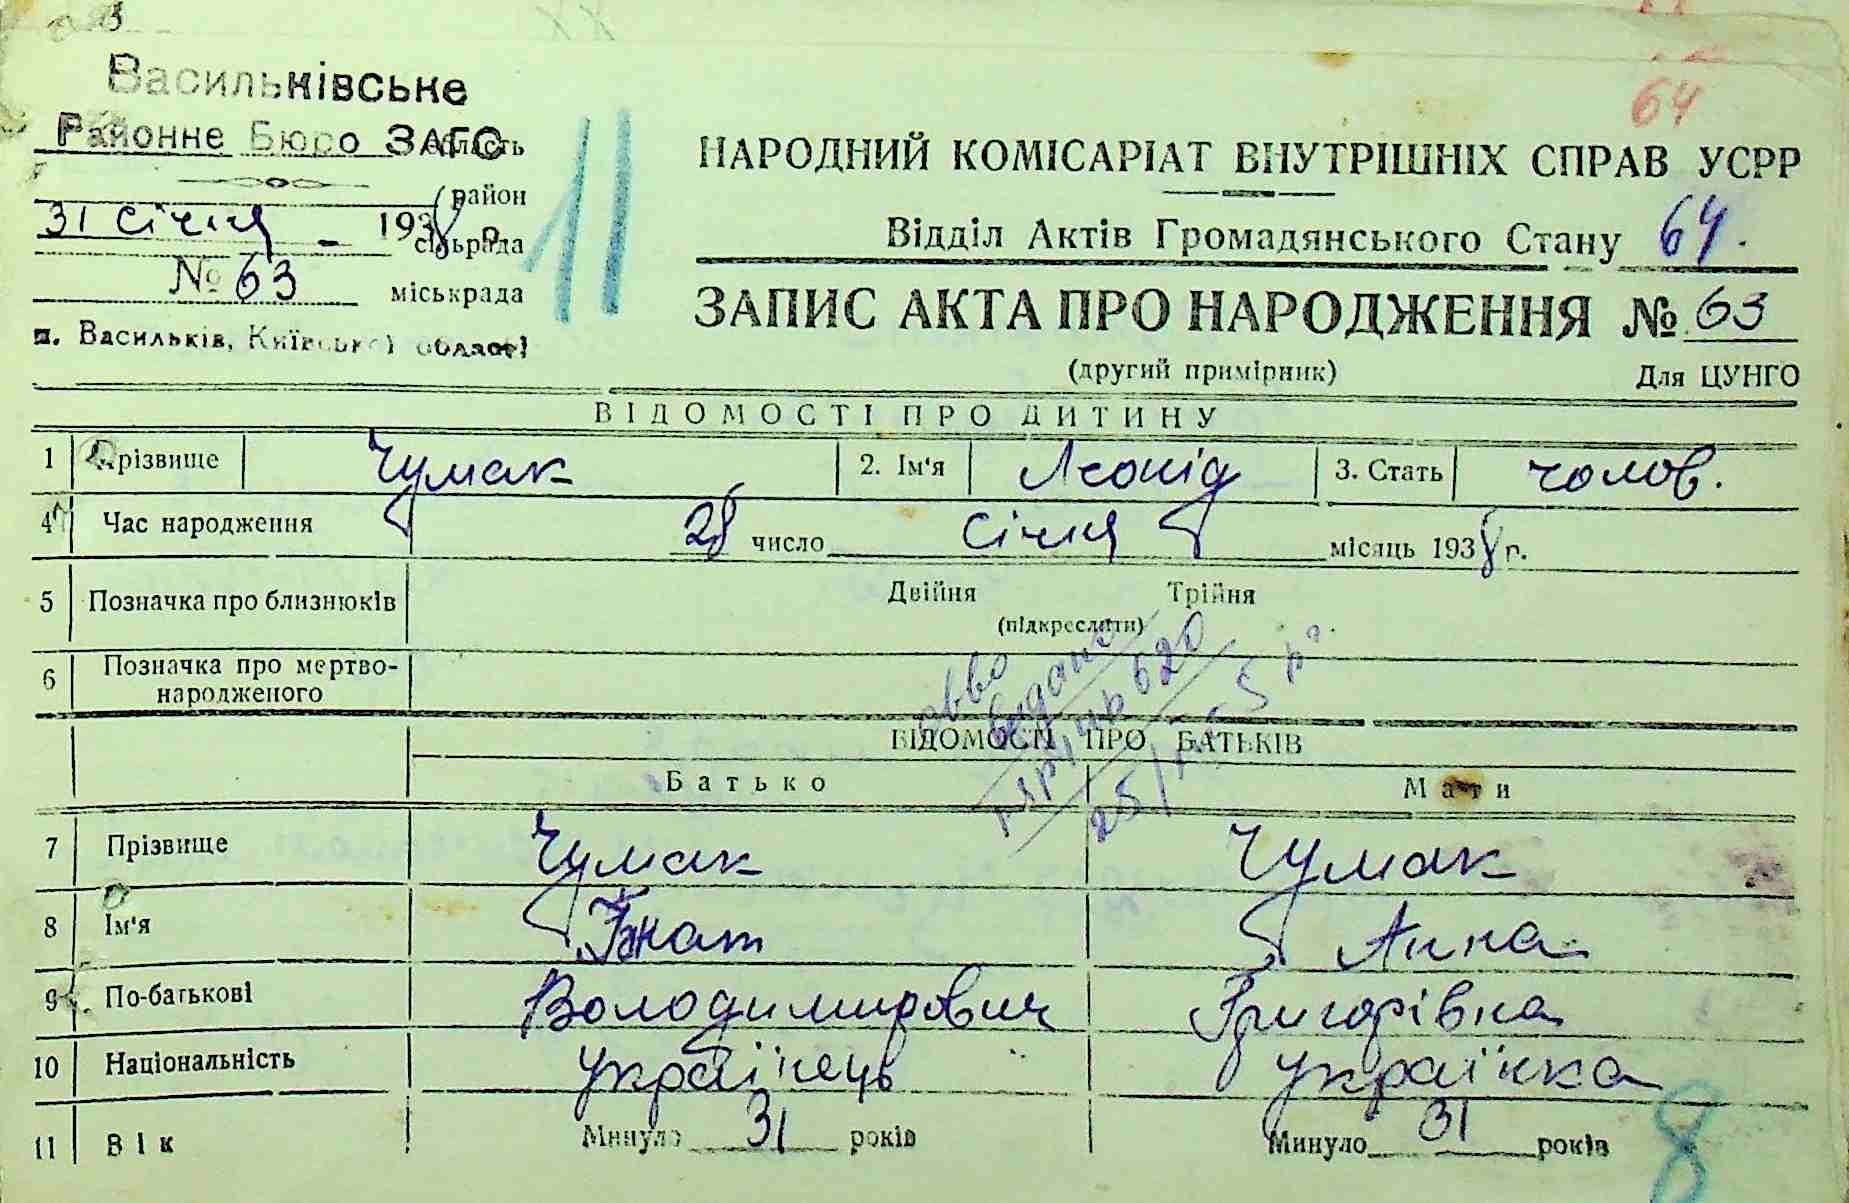 Васильківське
Районне Бюро ЗАГС
область
район
31 січня 1938 р.
сільрада
№ 63
міськрада
м. Васильків, Київської області
11
64
НАРОДНИЙ КОМІСАРІАТ ВНУТРІШНІХ СПРАВ УСРР
Відділ Актів Громадянського Стану 64.
ЗАПИС АКТА ПРО НАРОДЖЕННЯ № 63
(другий примірник) Для ЦУНГО
ВІДОМОСТІ ПРО ДИТИНУ
1 Прізвище Чумак 2. Ім'я Леонід 3. Стать чолов.
4 Час народження 28 число січня місяць 1938 р.
5 Позначка про близнюків Двійня Трійня
(підкреслити)
6 Позначка про мертво-
народженого
видано
620
ВІДОМОСТІ ПРО БАТЬКІВ
Батько Мати
7 Прізвище Чумак Чумак
8 Ім'я Гнат Анна
9 По-батькові Володимирович Григорівна
10 Національність українець українка
11 Вік Минуло 31 років Минуло 31 років
8